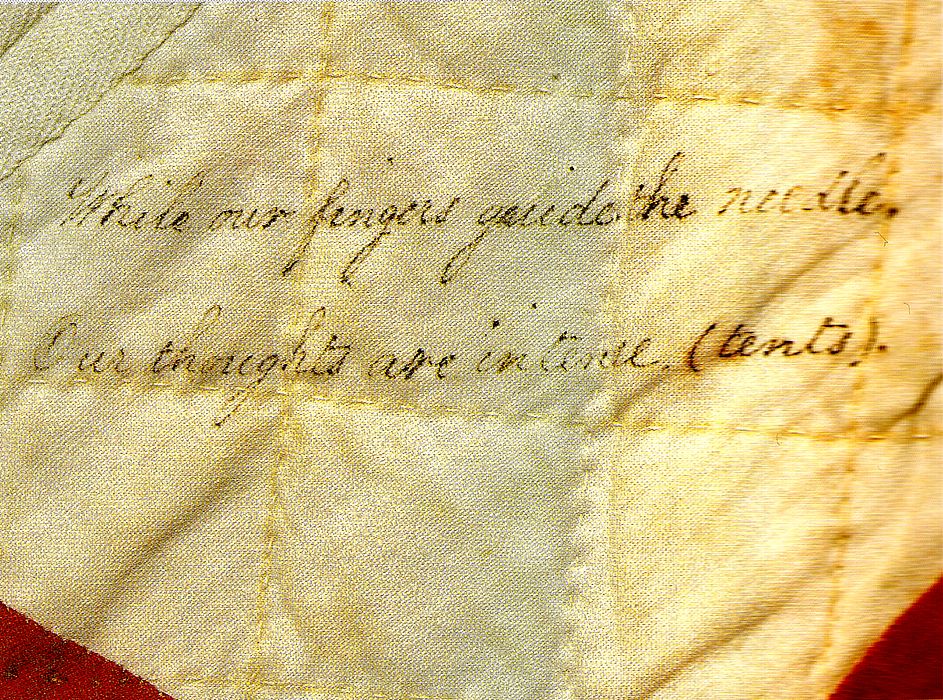 While our fingers guide the needle.
Our thoughts are intense. (tents).